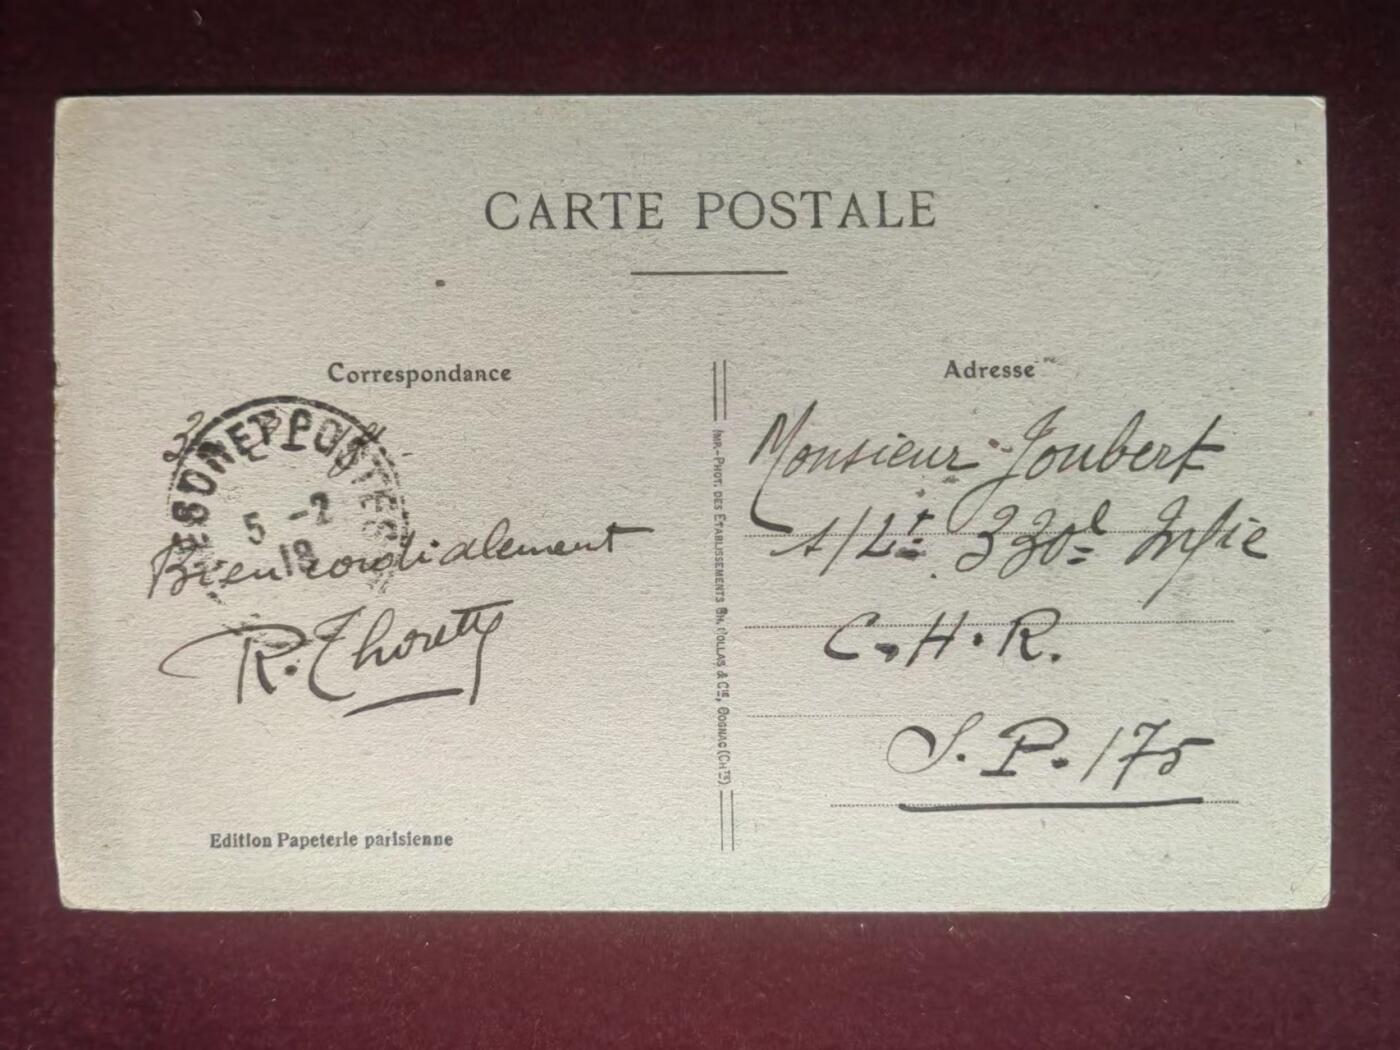 CARTE POSTALE
Correspondance
ESOR ET POSTES
5 -2
19
Bien cordialement
R. Thoretty
Edition Papeterie parisienne
IMP.-PHOT. DES ETABLISSEMENTS CH. COLLAS & CIE, COGNAC (CHTE)
Adresse
Monsieur Joubert
s/Lt 330e Infie
C.H.R.
S.P. 175